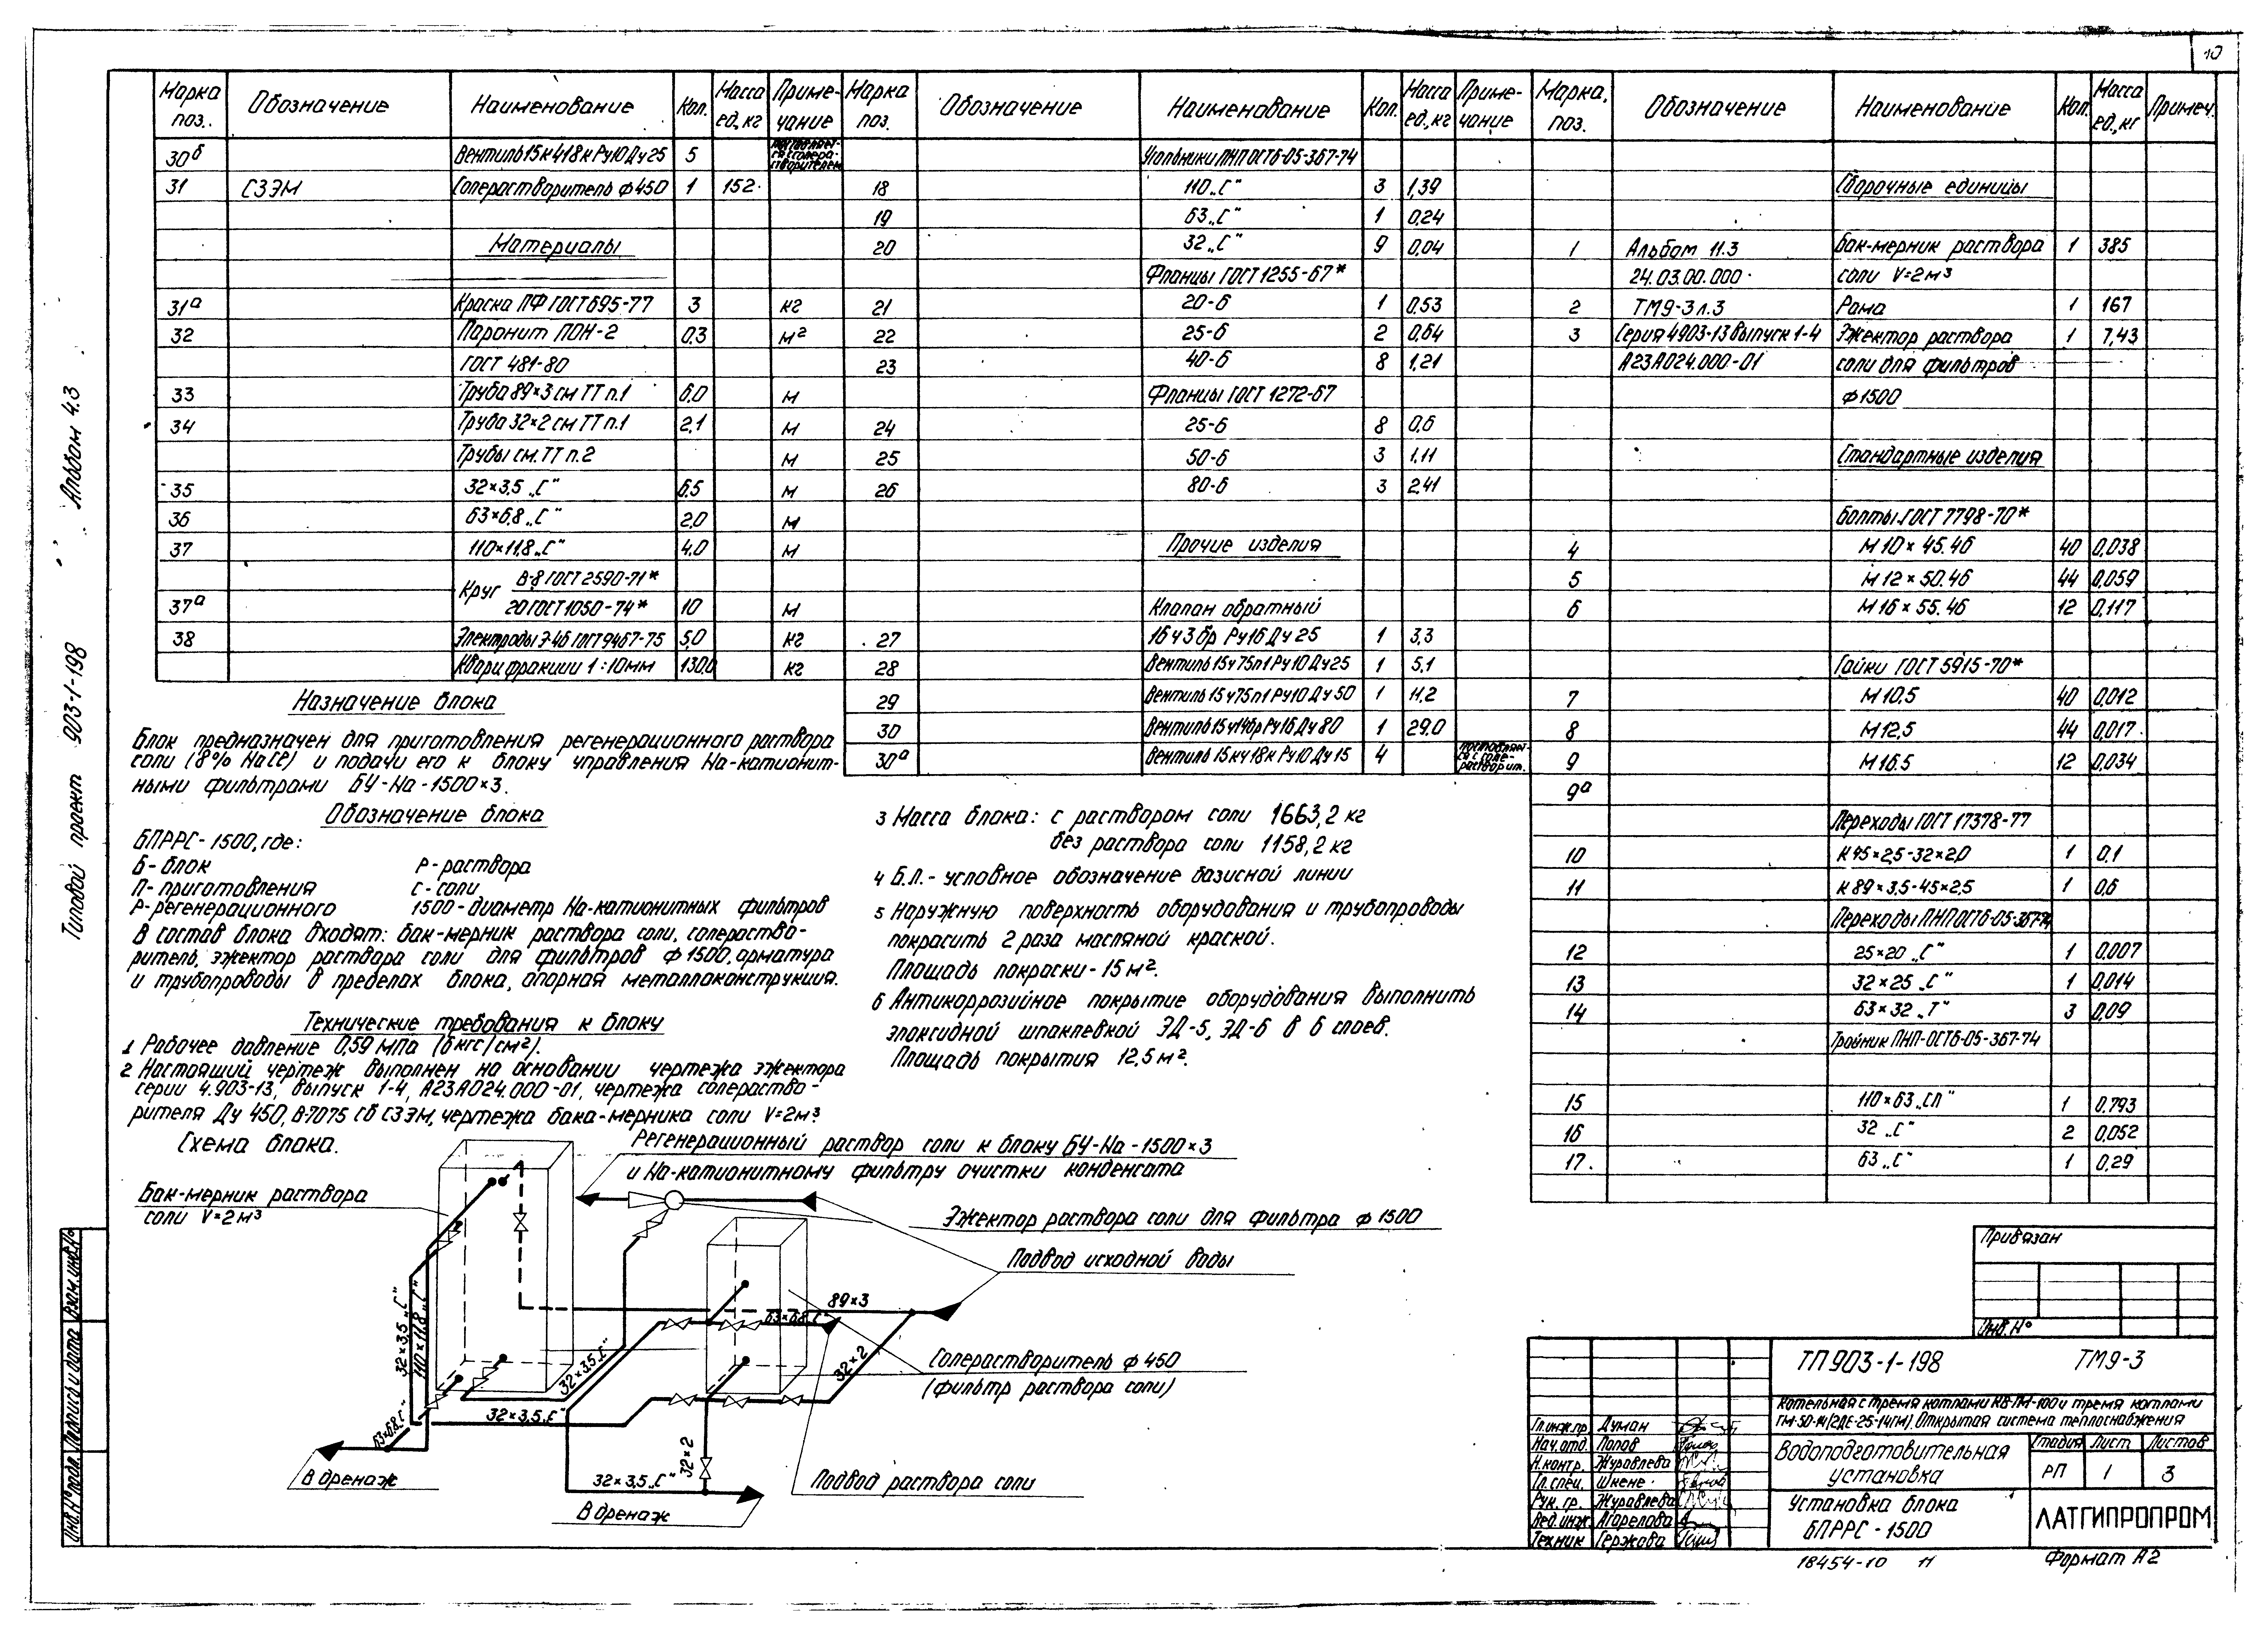 10
Марка поз. Обозначение Наименование Кол. Масса ед, кг Приме-чание
30б Вентиль 15кч18к Ру10 Ду25 5
31 СЗЭМ Солерастворитель ф450 1 152
Материалы
31а Краска ПФ ГОСТ 695-77 3 кг
32 Паронит ПОН-2 0,3 м²
ГОСТ 481-80
33 Труба 89×3 см ТТ п.1 6,0 м
34 Труба 32×2 см ТТ п.1 2,1 м
Трубы см. ТТ п.2 м
35 32×3,5 „С" 6,5 м
36 63×6,8 „С" 2,0 м
37 110×11,8 „С" 4,0 м
Круг В-8 ГОСТ 2590-71*
37а 20 ГОСТ 1050-74* 10 м
38 Электроды Э-46 ГОСТ 9467-75 5,0 кг
Кварц фракции 1÷10мм 130,0 кг
Марка поз. Обозначение Наименование Кол. Масса ед, кг Приме-чание
Угольники ПНП ОСТ6-05-367-74
18 110 „С" 3 1,39
19 63 „С" 1 0,24
20 32 „С" 9 0,04
Фланцы ГОСТ 1255-67*
21 20-6 1 0,53
22 25-6 2 0,64
23 40-6 8 1,21
Фланцы ГОСТ 1272-67
24 25-6 8 0,6
25 50-6 3 1,11
26 80-6 3 2,41
Прочие изделия
Клапан обратный
27 16ч3бр Ру16 Ду25 1 3,3
28 Вентиль 15ч75п1 Ру10 Ду25 1 5,1
29 Вентиль 15ч75п1 Ру10 Ду50 1 11,2
30 Вентиль 15ч14бр Ру16 Ду80 1 29,0
30а Вентиль 15кч18к Ру10 Ду15 4
Марка, поз. Обозначение Наименование Кол. Масса ед, кг Примеч.
Сборочные единицы
1 Альбом 11.3 Бак-мерник раствора 1 385
24.03.00.000 соли V=2м³
2 ТМ9-3 л.3 Рама 1 167
3 Серия 4903-13 выпуск 1-4 Эжектор раствора 1 7,43
А23А024.000-01 соли для фильтров
ф1500
Стандартные изделия
Болты ГОСТ 7798-70*
4 М10×45.46 40 0,038
5 М12×50.46 44 0,059
6 М16×55.46 12 0,117
Гайки ГОСТ 5915-70*
7 М10.5 40 0,012
8 М12,5 44 0,017
9 М16.5 12 0,034
9а
Переходы ГОСТ 17378-77
10 К45×2,5-32×2,0 1 0,1
11 К89×3,5-45×2,5 1 0,6
Переходы ПНП ОСТ6-05-367-74
12 25×20 „С" 1 0,007
13 32×25 „С" 1 0,014
14 63×32 „Т" 3 0,09
Тройник ПНП-ОСТ6-05-367-74
15 110×63 „СЛ" 1 0.793
16 32 „С" 2 0,052
17. 63 „С" 1 0,29
Назначение блока
Блок предназначен для приготовления регенерационного раствора
соли (8% NaCl) и подачи его к блоку управления Na-катионит-
ными фильтрами БУ-Na-1500×3.
Обозначение блока
БПРРС-1500, где:
Б-блок Р-раствора
П-приготовления С-соли
Р-регенерационного 1500-диаметр Na-катионитных фильтров
В состав блока входят: бак-мерник раствора соли, солераство-
ритель, эжектор раствора соли для фильтров ф1500, арматура
и трубопроводы в пределах блока, опорная металлоконструкция.
Технические требования к блоку
1 Рабочее давление 0,59 мПа (6 кгс/см²).
2 Настоящий чертеж выполнен на основании чертежа эжектора
серии 4.903-13, выпуск 1-4, А23А024.000-01, чертежа солераство-
рителя Ду 450, В-7075 СБ СЗЭМ, чертежа бака-мерника соли V=2м³
3 Масса блока: с раствором соли 1663,2 кг
без раствора соли 1158,2 кг
4 Б.Л.- условное обозначение базисной линии
5 Наружную поверхность оборудования и трубопроводы
покрасить 2 раза масляной краской.
Площадь покраски-15м².
6 Антикоррозийное покрытие оборудования выполнить
эпоксидной шпаклевкой ЭД-5, ЭД-6 в 6 слоев.
Площадь покрытия 12,5м².
Схема блока.
Регенерационный раствор соли к блоку БУ-Na-1500×3
и Na-катионитному фильтру очистки конденсата
Бак-мерник раствора
соли V=2м³
Эжектор раствора соли для фильтра ф1500
Подвод исходной воды
89×3
63×6,8 „С"
32×3,5 „С"
110×11,8 „С"
32×3,5 „С"
32×2
Солерастворитель ф450
(фильтр раствора соли)
32×3,5 „С"
63×6,8 „С"
32×2
32×3,5 „С"
В дренаж
В дренаж
Подвод раствора соли
Типовой проект 903-1-198 Альбом 4.3
Инв. N° подл. Подпись и дата Взам. инв. N°
Привязан
Инв. N°
ТП 903-1-198 ТМ9-3
Котельная с тремя котлами КВ-ГМ-100 и тремя котлами
ГМ-50-14 (2ДЕ-25-14ГМ). Открытая система теплоснабжения
Гл.инж.пр. Думан
Нач.отд. Попов
Н.контр. Журавлева
Гл.спец. Шкене
Рук. гр. Журавлева
Вед.инж. Агарелова
Техник Гержова
Водоподготовительная установка
Стадия Лист Листов
РП 1 3
Установка блока БПРРС-1500
ЛАТГИПРОПРОМ
18454-10 11 Формат А2